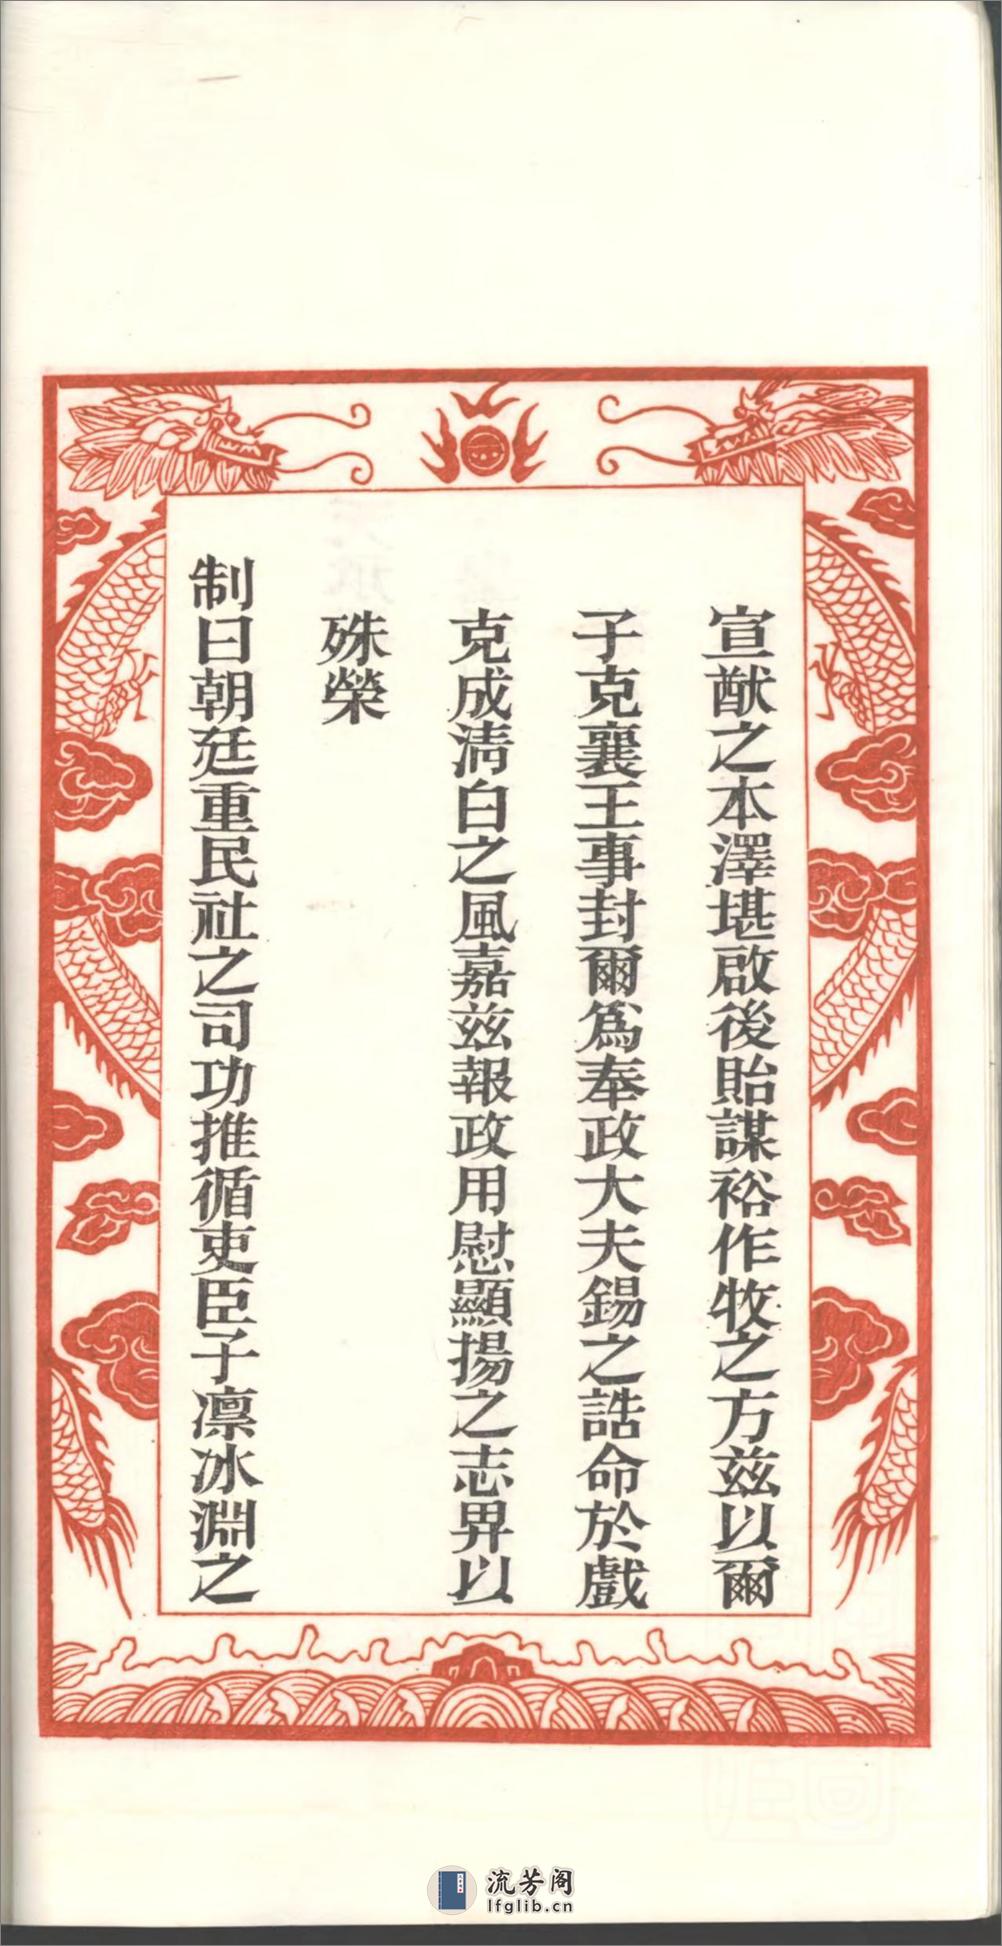 宣猷之本澤堪啟後貽謀裕作牧之方茲以爾
子克襄王事封爾爲奉政大夫錫之誥命於戲
克成清白之風嘉茲報政用慰顯揚之志畀以
殊榮
制曰朝廷重民社之司功推循吏臣子凛冰淵之
流芳阁
lfglib.cn